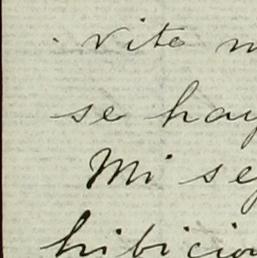 vite
se hay
Mi seg
hibicio